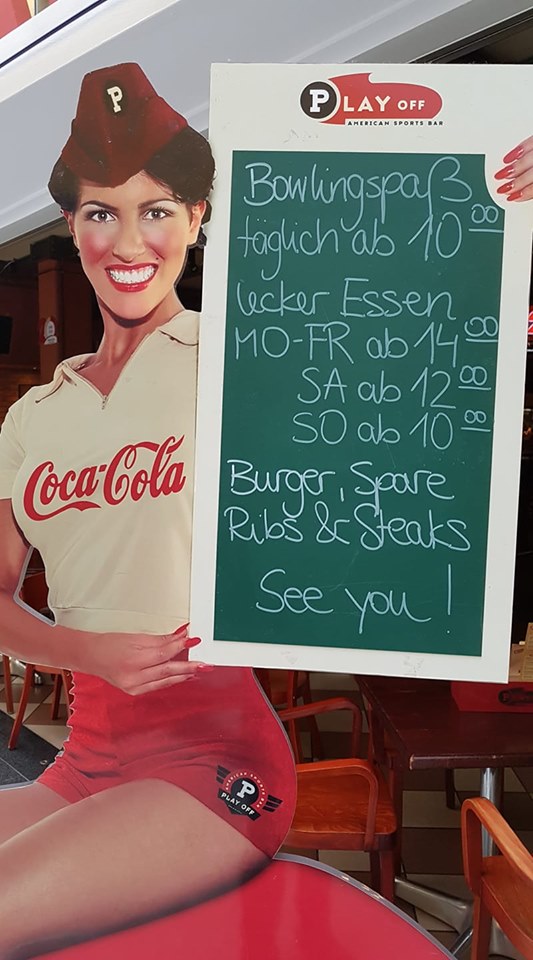 P
PLAY OFF
AMERICAN SPORTS BAR
Bowlingspaß
täglich ab 10 00
lecker Essen
MO-FR ab 14 00
SA ab 12 00
SO ab 10 00
Burger, Spare
Ribs & Steaks
See you!
Coca-Cola
P
PLAY OFF